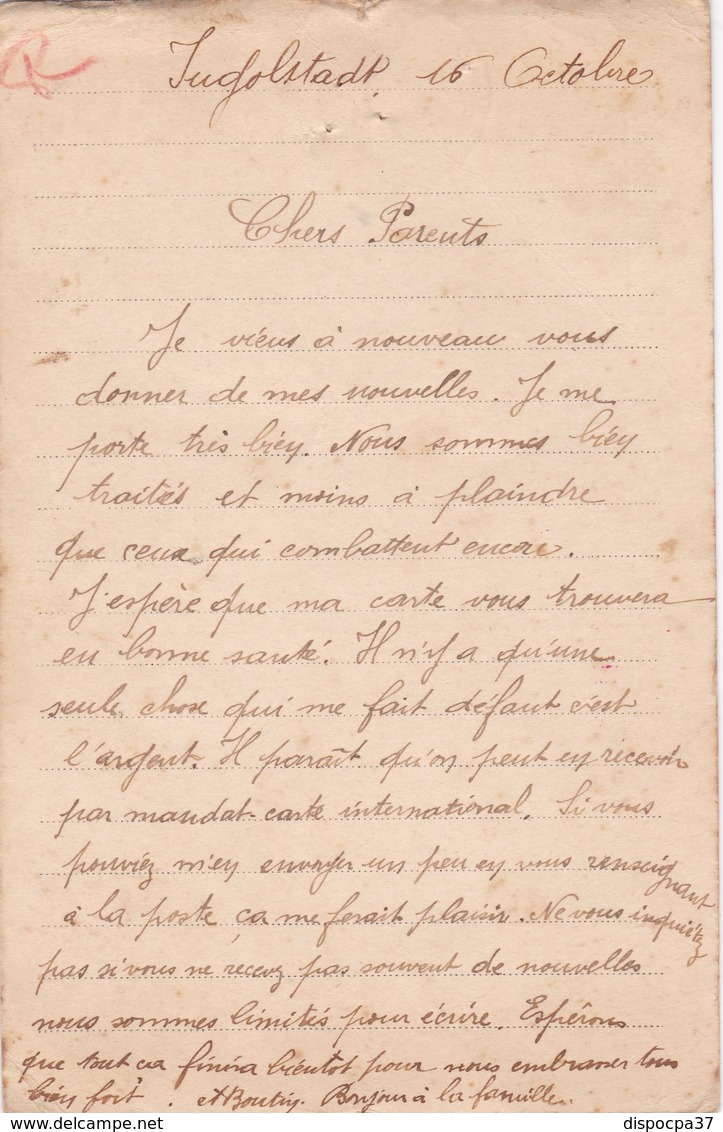 Ingolstadt, 16 Octobre
Chers Parents
Je viens à nouveau vous
donner de mes nouvelles. Je me
porte très bien. Nous sommes bien
traités et moins à plaindre
que ceux qui combattent encore.
J'espère que ma carte vous trouvera
en bonne santé. Il n'y a qu'une
seule chose qui me fait défaut c'est
l'argent. Il paraît qu'on peut en recevoir
par mandat-carte international. Si vous
pouviez m'en envoyer un peu en vous renseignant
à la poste ça me ferait plaisir. Ne vous inquiétez
pas si vous ne recevez pas souvent de nouvelles
nous sommes limités pour écrire. Espérons
que tout ça finira bientôt pour nous embrasser tous
bien fort. A Boutin. Bonjour à la famille.
dispocpa37